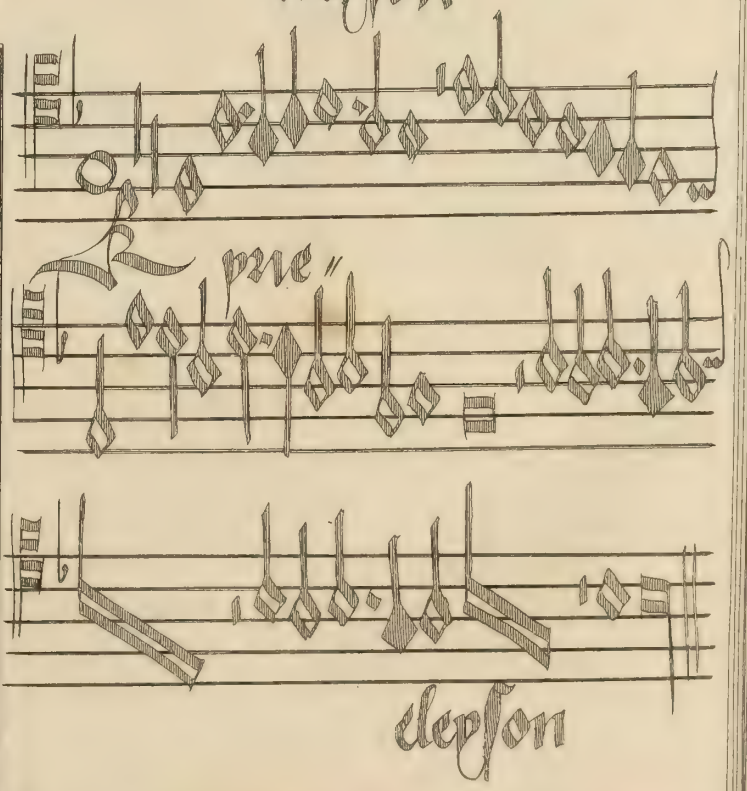 K yrie〃
eleyson